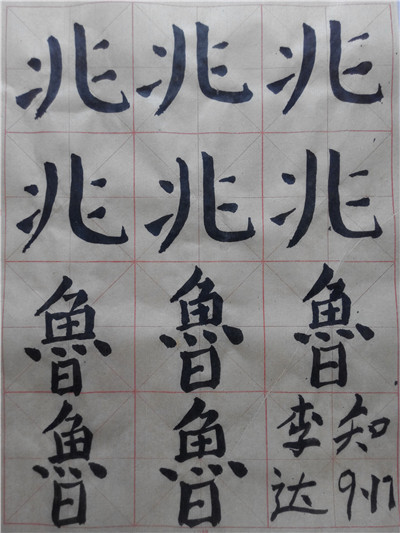 兆兆兆
兆兆兆
魯魯魯
魯魯
李知
达9.17